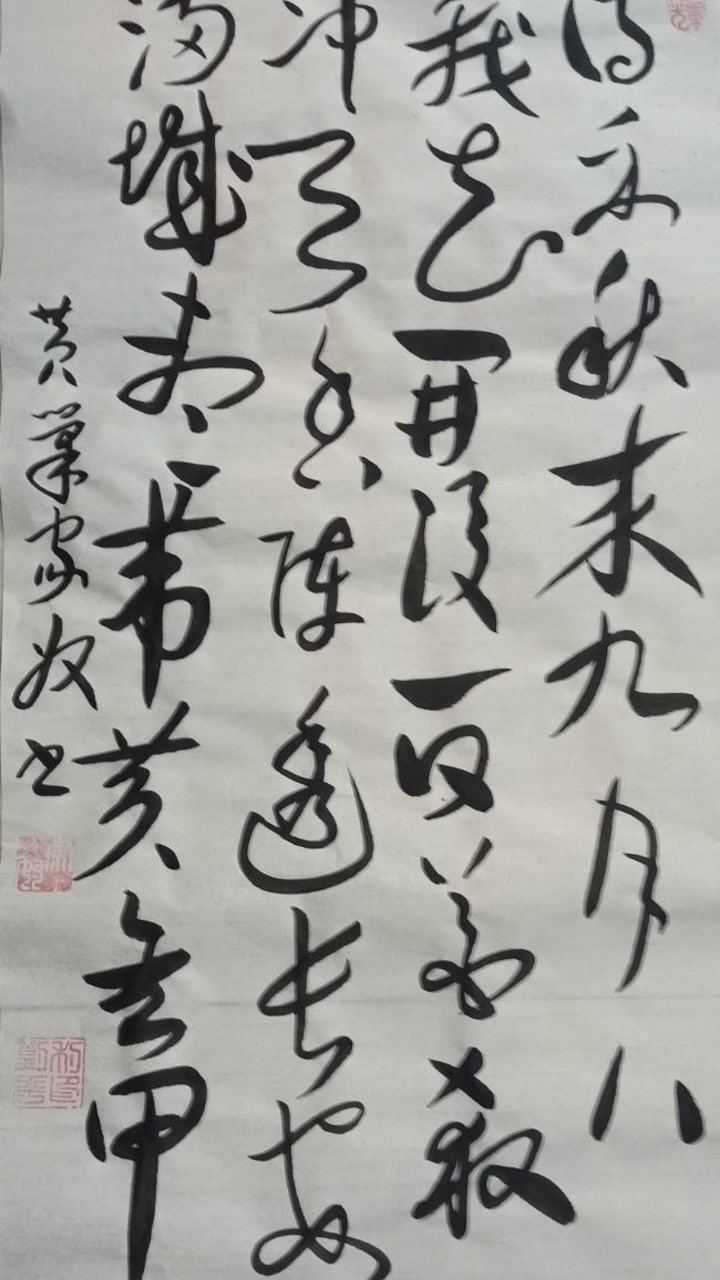 待到秋来九月八
我花开后百花杀
冲天香阵透长安
满城尽带黄金甲
黄巢家奴书